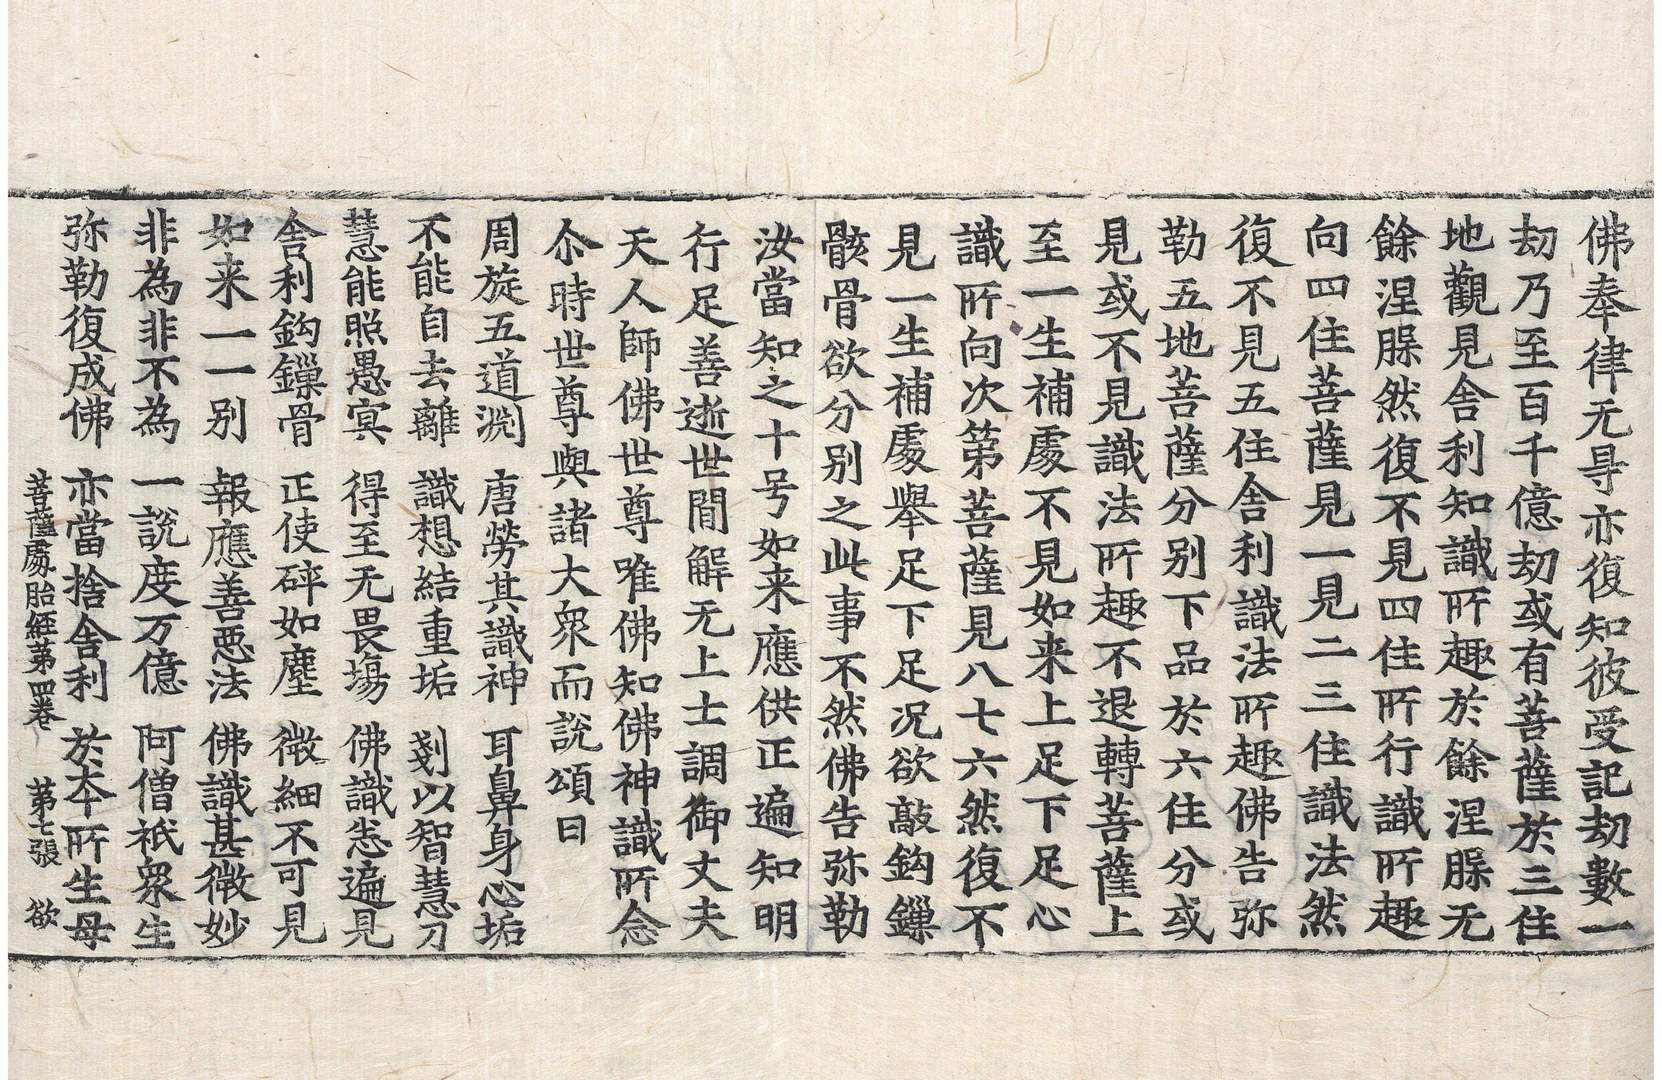 佛奉律无㝵亦復知彼受記劫數一
劫乃至百千億劫或有菩薩於三住
地觀見舍利知識所趣於餘涅脲无
餘涅脲然復不見四住所行識所趣
向四住菩薩見一見二三住識法然
復不見五住舍利識法所趣佛告弥
勒五地菩薩分別下品於六住分或
見或不見識法所趣不退轉菩薩上
至一生補處不見如来上足下足心
識所向次第菩薩見八七六然復不
見一生補處舉足下足况欲敲鈎鏁
骸骨欲分别之此事不然佛告弥勒
汝當知之十号如来應供正遍知明
行足善逝世間解无上士調御丈夫
天人師佛世尊唯佛知佛神識所念
尒時世尊與諸大衆而說頌曰
周旋五道淵 唐勞其識神 耳鼻身心垢
不能自去離 識想結重垢 剗以智慧刀
慧能照愚冥 得至无畏場 佛識悉遍見
舍利鈎鏁骨 正使碎如塵 微細不可見
如来一一别 報應善惡法 佛識甚微妙
非為非不為 一說度万億 阿僧祇衆生
弥勒復成佛 亦當捨舍利 於本所生母
菩薩處胎經第四卷 第七張 欲